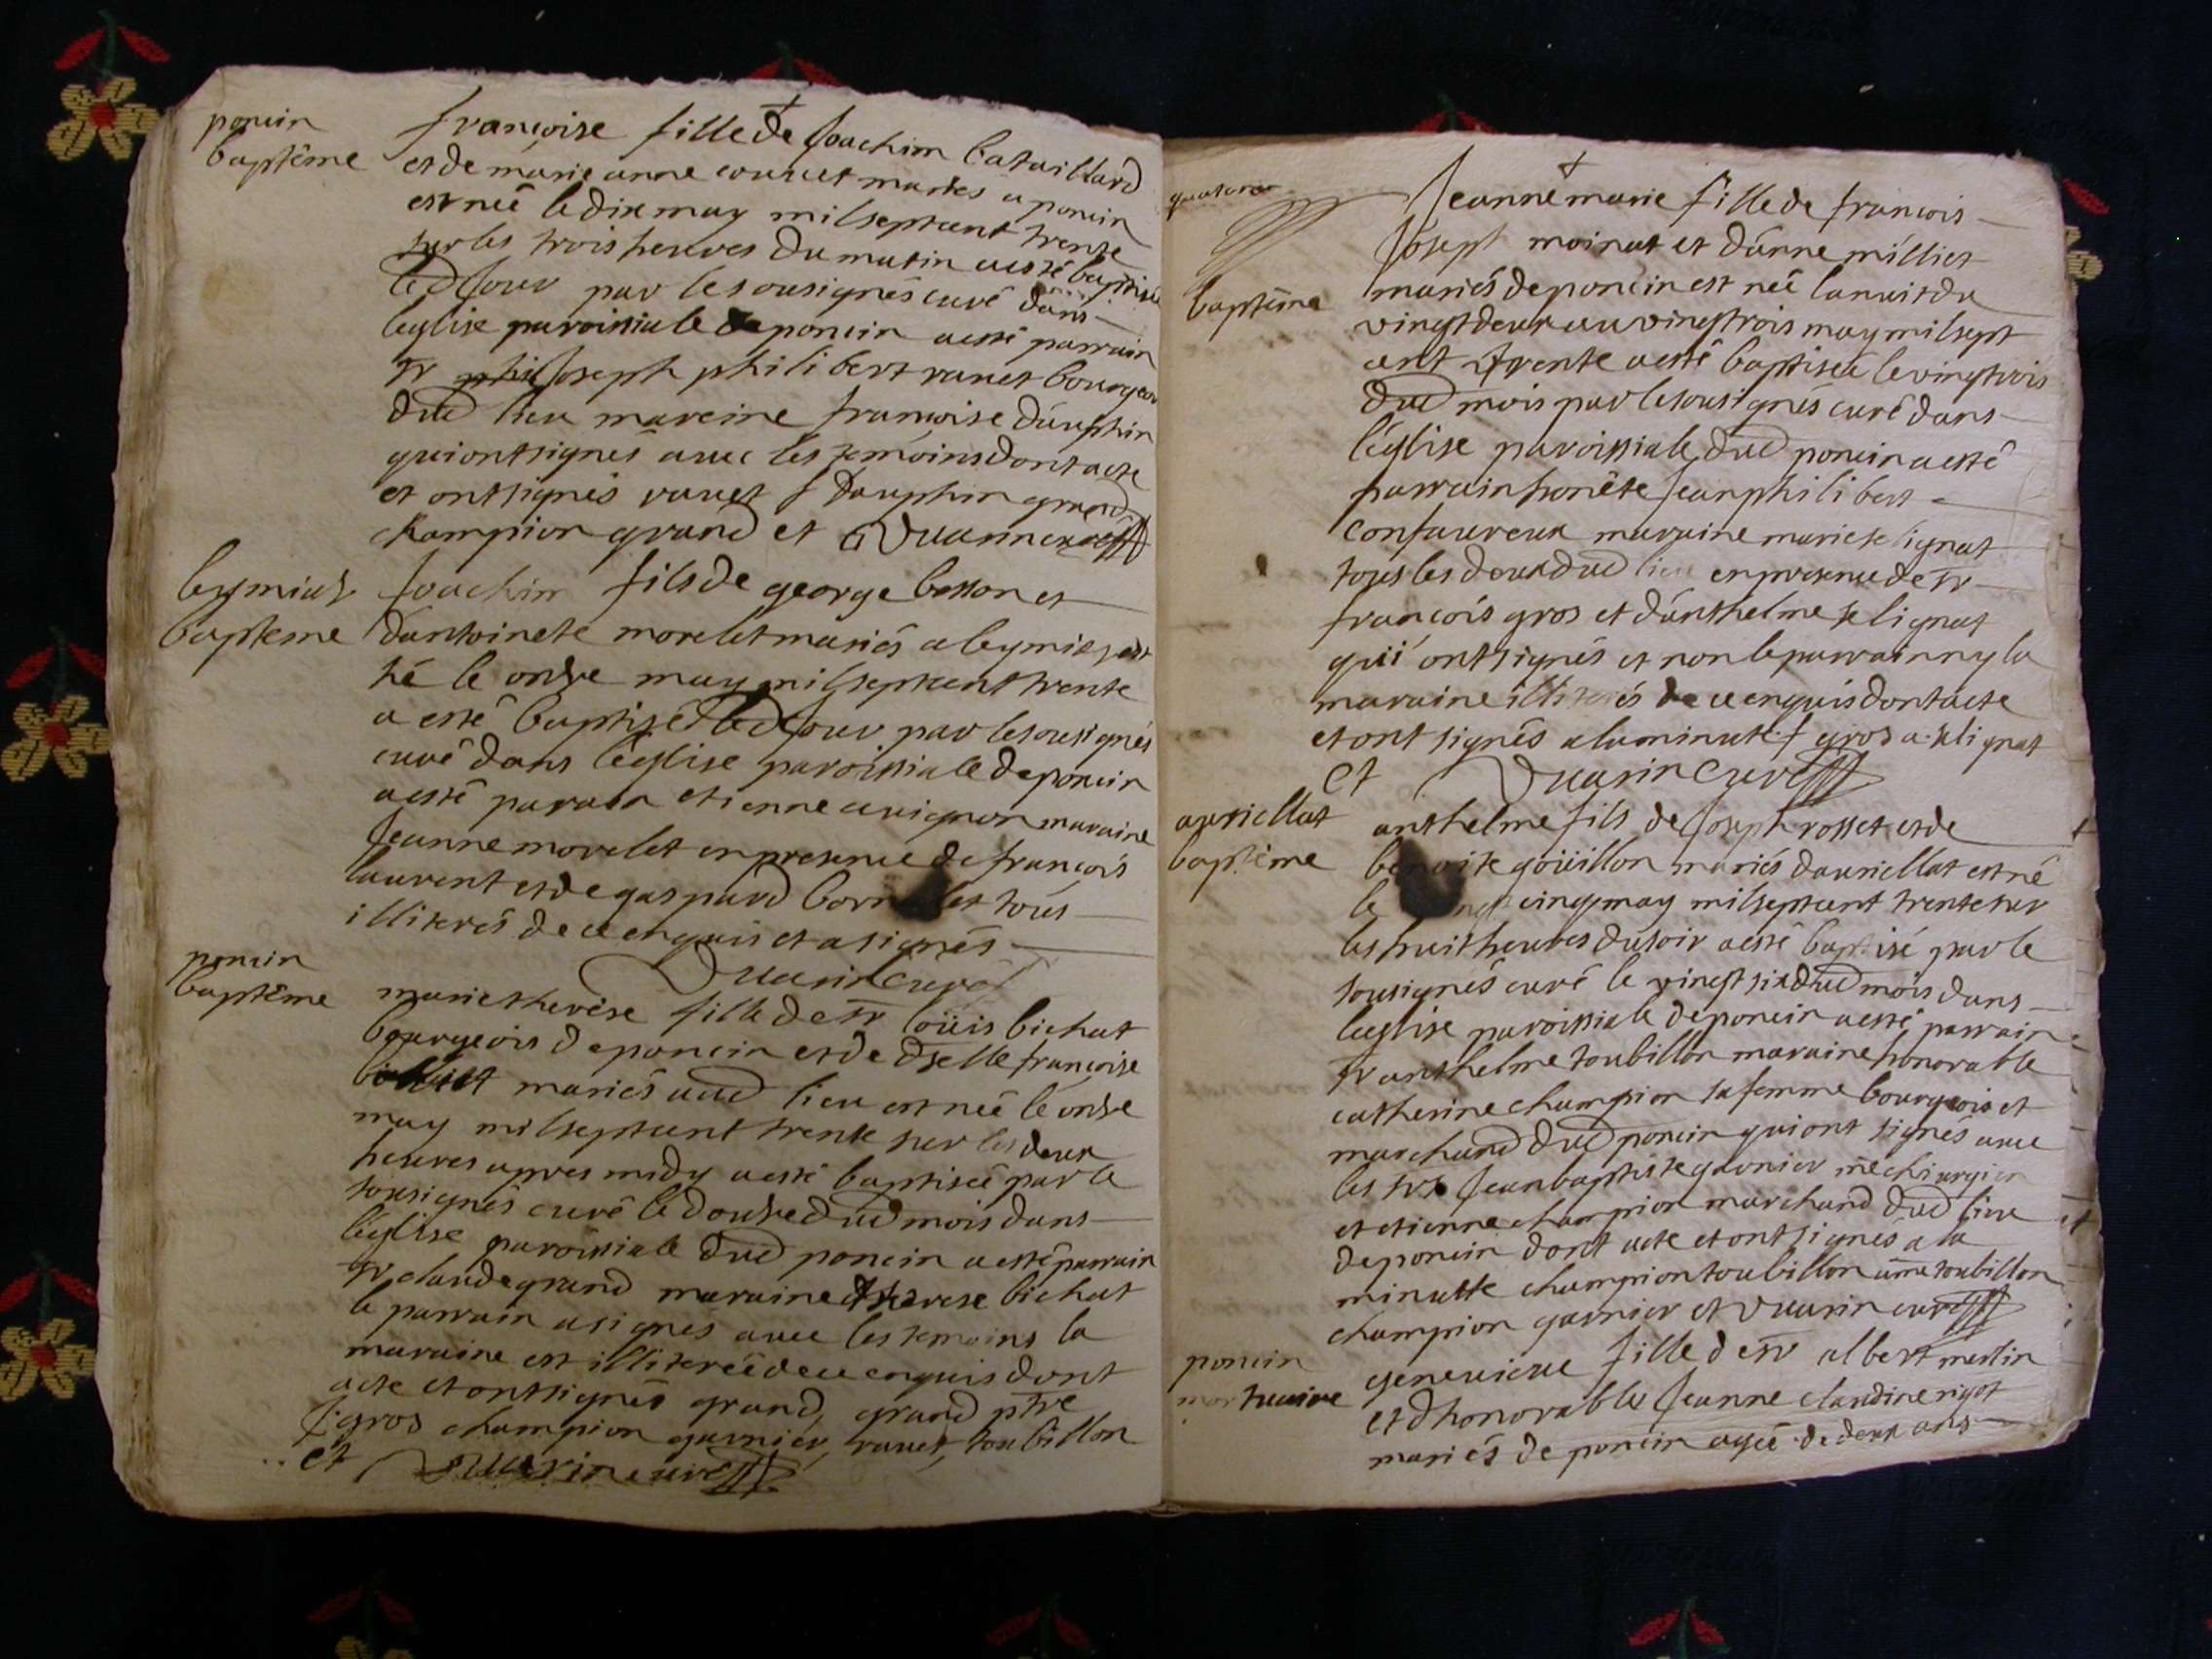 poncin
baptême
françoise fille de Joachim bataillard
et de marie anne couvet mariés a poncin
est née le dix may mil sept cent trente
sur les trois heures du matin a esté baptisée
led Jour par le sousignés curé dans
leglise paroissiale de poncin a esté parrain
sr phi Joseph philibert ravet bourgeois
dud lieu maraine françoise dauphin
qui ont signés avec les temoins dont acte
et ont signés ravet f dauphin grand
champion grand et Duarin curé
leymiat
baptême
Joachim fils de george besson et
dantoinete morelet mariés a leymiat est
né le onze may mil sept cent trente
a esté baptisé led Jour par le sousignés
curé dans l'église paroissiale de poncin
a esté parain etienne avignon maraine
Jeanne morelet en presence de françois
laurent et de gaspard tous
illiterés de ce enquis et a signés
Duarin curé
poncin
baptême
marie therèse fille de sr loüis bichat
bourgeois de poncin et de dselle françoise
mariés aud lieu est née le onze
may mil sept cent trente sur les deux
heures apres midy a esté baptisée par le
sousignés curé le douze dud mois dans
l'église paroissiale dud poncin a esté parrain
sr claude grand maraine therese bichat
le parrain a signés avec les temoins la
maraine est illiterée de ce enquis dont
acte et ont signés grand, grand ptre
f. gros champion garnier, ravet, toubillon
et Duarin curé
quatorze
baptême
Jeanne marie fille de francois
Joseph moinat et d'anne milliet
mariés de poncin est née la nuit du
vingt deux au vingt trois may mil sept
cent trente a esté baptisée le vingt trois
dud mois par le sousignés curé dans
l'église paroissiale dud poncin a esté
parrain honête Jean philibert
confavreux maraine marie selignat
tous les deux dud lieu en presence de sr
françois gros et d'anthelme selignat
qui ont signés et non le parrain ny la
maraine illiterés de ce enquis dont acte
et ont signés a la minute f gros a. selignat
et Duarin curé
avrillat
baptême
anthelme fils de Joseph rosset et de
benoite goüillon mariés davrillat est né
le vingt cinq may mil sept cent trente sur
les huit heures du soir a esté baptisé par le
sousignés curé le vingt six dud mois dans
leglise paroissiale de poncin a esté parrain
sr anthelme toubillon maraine honorable
catherine champion sa femme bourgeois et
marchand dud poncin qui ont signés avec
les srs Jean baptiste garnier me chirurgien
et etienne champion marchand dud lieu
de poncin dont acte et ont signés a la
minutte champion toubillon toubillon
champion garnier et Duarin curé
poncin
mortuaire
genevieve fille de sr albert merlin
et d'honorable Jeanne claudine rigot
mariés de poncin agée de deux ans